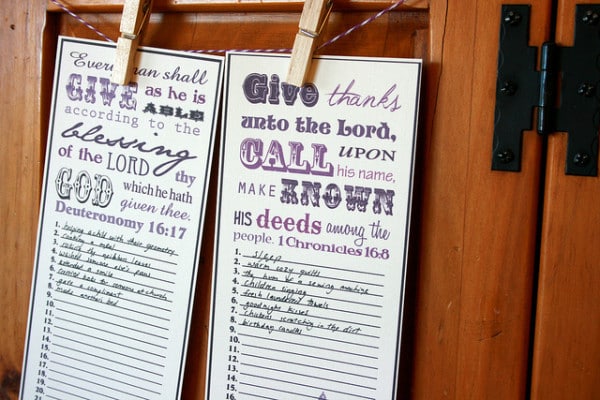 Every man shall
GIVE as he is
ABLE
according to the
blessing
of the LORD thy
GOD which he hath
given thee.
Deuteronomy 16:17
1. helping a child with their geometry
2. cooking a meal
3. the neighbors leaves
4. washed someone else's
5. extended a smile
6. for someone at church
7. gave a compliment
8. made another bed
9.
10.
11.
12.
13.
14.
15.
16.
17.
18.
19.
20.
21.
Give thanks
unto the Lord,
CALL UPON
his name,
MAKE KNOWN
HIS deeds among the
people. 1 Chronicles 16:8
1. sleep
2. warm cozy quilts
3. the hum of a sewing machine
4. children singing
5. fresh laundered towels
6. goodnight kisses
7. chickens scratching in the dirt
8. birthday candles
9.
10.
11.
12.
13.
14.
15.
16.